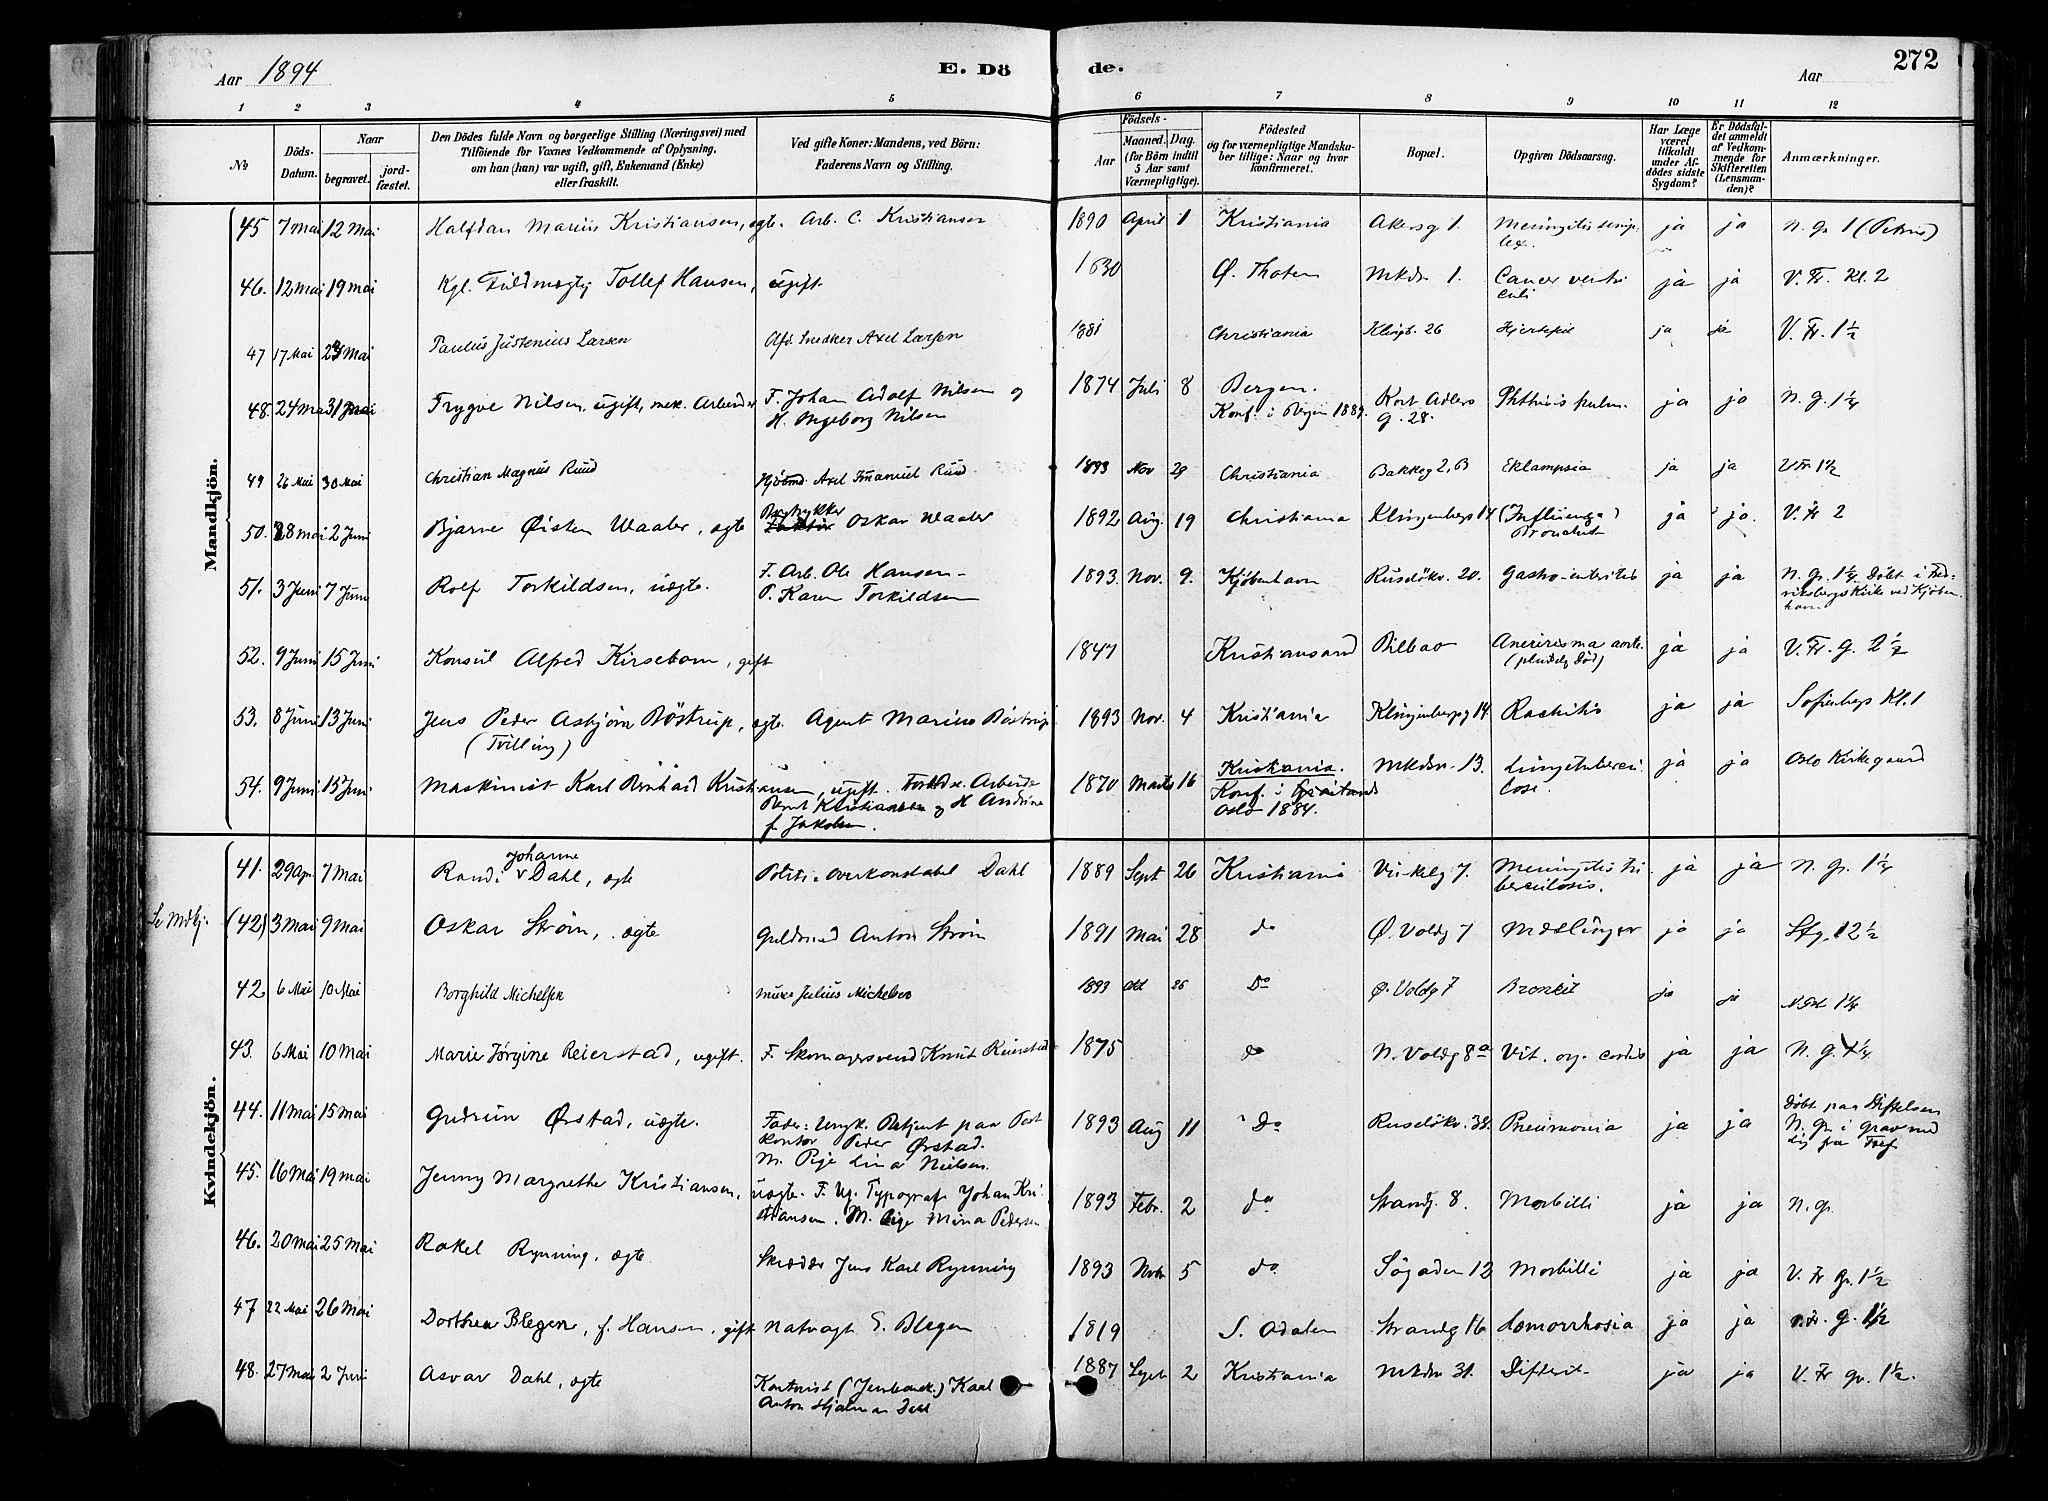 Aar 1894 E. Dö de. Aar 272
1 2 3 4 5 6 7 8 9 10 11 12
No Döds-Datum. Naar begravet. jord-fæstet. Den Dödes fulde Navn og borgerlige Stilling (Næringsvei) med Tilföiende for Voxnes Vedkommende af Oplysning, om han (hun) var ugift, gift, Enkemand (Enke) eller fraskilt. Ved gifte Koner: Mandens, ved Börn: Faderens Navn og Stilling. Födsels- Aar Maaned. Dag. (for Börn indtil 5 Aar samt Værnepligtige). Födested og for værnepligtige Mandska-ber tillige: Naar og hvor konfirmeret. Bopæl. Opgiven Dödsaarsag. Har Læge været tilkaldt under Af-dödes sidste Sygdom? Er Dödsfal-det anmeldt af Vedkom-mende for Skifteretten (Lensman-den)? Anmærkninger.
Mandkjön.
45 7 Mai 12 Mai Halfdan Marius Kristiansen, ægte. Arb. C. Kristiansen 1890 April 1 Kristiania Akersg 1. Meningitis simp-lex. ja ja N. Gr 1 (Petrus)
46. 12 Mai 19 Mai Kgl. Fuldmægtig Tollef Hansen, ugift 1830 Ø. Thoten Mkdn 1. Cancer ventri culi ja ja V. Fr. Kl. 2
47 17 Mai 23 Mai Paulus Justenius Larsen Afd. Snedker Axel Larsen 1881 Christiania Klingb. 26 Hjertefeil ja ja V. Fr. 1 1/2
48. 24 Mai 31 Mai Trygve Nilsen, ugift, mek. Arbeider F. Johan Adolf Nilsen og H. Ingeborg Nilsen 1874 Juli 8 Bergen. Konf. i Bergen 1889. Kort Adlers G. 28. Phthisis pulm. ja ja N. G. 1 1/4
49 26 Mai 30 Mai Christian Magnus Ruud Axel Emanuel Ruud 1893 Nov 29 Christiania Bakkeg 2, B Eklampsia ja ja V Fr 1 1/2
50. 28 Mai 2 Juni Bjarne Øisten Waaler, ægte Bogtrykker Oskar Waaler 1892 Aug. 19 Christiania Klingenbergg 14 (Influenza) Bronchit ja ja. V. Fr 2
51. 3 Juni 7 Juni Rolf Torkildsen, uægte. F. Arb. Ole Hansen - P. Karen Torkildsen 1893. Nov. 9. Kjøbenhavn Rusdløkv. 20. Gastro-enteritis ja ja N. Gr. 1 1/4. Døbt i Fred-riksbergs Kirke ved Kjøben-havn
52. 9 Juni 15 Juni Konsul Alfred Kirsebom, gift 1847 Kristiansand Bilbao Anevrisma aorte. (pludselig Død) ja ja V. Fr. G. 2 1/2
53. 8 Juni 13 Juni Jens Peder Asbjørn Bøstrup, ægte. (Tvilling) Agent Marius Bøstrup 1893 Nov. 4 Kristiania Klingenbergg 14 Rachitis ja ja Sofienbergs Kl. 1
54. 9 Juni 15 Juni Maskinist Karl Bernhard Kristiansen, ugift. Arbeider Bernt Kristiansen og H. Andrine f. Jakobsen. 1870 Marts 16 Kristiania. Konf. i Oslo 1884. Mkdn. 13. Lungetubercu-lose. ja ja Oslo Kirkegaard
Kvindekjön.
41. 29 Apr. 7 Mai Randi Johanne Dahl, ægte Politi-overkonstabel Dahl 1889 Sept 26 Kristiania Vinkelg 7. Meningitis tu berculosis. ja ja N. Gr. 1 1/4
Se Mdkj. (42) 3 Mai 9 Mai Oskar Strøm, ægte Guldsmed Anton Strøm 1891 Mai 28 do Ø. Voldg 7 Mæslinger ja ja Stfg. 1 2 1/2
42 6 Mai 10 Mai Borghild Michelsen Murer Julius Michelsen 1893 Okt 26 Do Ø. Voldg 7 Bronkit ja ja N. Grl 1 1/4
43. 6 Mai 10 Mai Marie Jørgine Reierstad, ugift. F. Skomagersvend Knut Reierstad 1875 do N. Voldg 8a Vit. org. cordis ja ja N. G. 1 1/4
44. 11 Mai 15 Mai Gudrun Ørstad, uægte. Fader: Ungk. Betjent paa Post kontor Peder Ørstad. M. Pige Lina Nielsen. 1893 Aug 11 Do Rusdløkv. 38. Pneumonia ja ja Døbt paa Stiftelsen N. Gr. i grav med Lig fra
45. 16 Mai 19 Mai Jenny Margrethe Kristiansen, uægte. F. Ug. Typograf Johan Kri-stiansen. M. Pige Mina Pedersen 1893 Febr. 2 do Strandg. 8. Morbilli ja ja N. Gr.
46. 20 Mai 25 Mai Rakel Rynning, ægte Skrædder Jens Karl Rynning 1893 Nvbr 5 do Søgaden 12 Morbilli ja ja V. Fr Gr. 1 1/2
47 22 Mai 26 Mai Dorthea Blegen, f. Hansen, gift Natvagt E. Blegen 1819 S. Odalen Strandg 16 ja ja V. Fr. G. 1 1/2
48. 27 Mai 2 Juni Asvar Dahl, ægte Kontorist (Jernbanek.) Karl Anton Hjalmar Dahl 1887 Sept 2 Kristiania Mkdn 31. Difterit. ja ja V. Fr gr. 1 1/2.